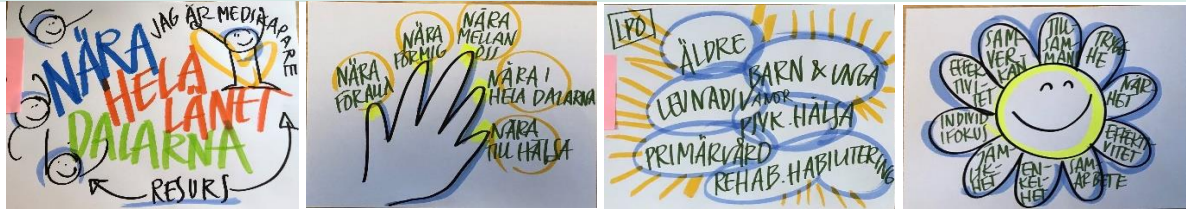 JAG ÄR MEDSKAPARE
NÄRA
HELA
LÄNET
DALARNA
RESURS
NÄRA
FÖR ALLA
NÄRA
FÖR MIG
NÄRA
MELLAN
OSS
NÄRA I
HELA DALARNA
NÄRA
TILL HÄLSA
LPO
ÄLDRE
BARN & UNGA
LEVNADSVANOR
PSYK. HÄLSA
PRIMÄRVÅRD
REHAB. HABILITERING
SAM-
VER-
KAN
TILL-
SAM-
MANS
TRYGG-
HET
NÄR-
HET
EFFEKTI-
VITET
SAM-
ARBETE
EN-
KEL-
HET
JÄM-
LIK-
HET
INDIVID
I FOKUS
EFFEK-
TIVI-
TET